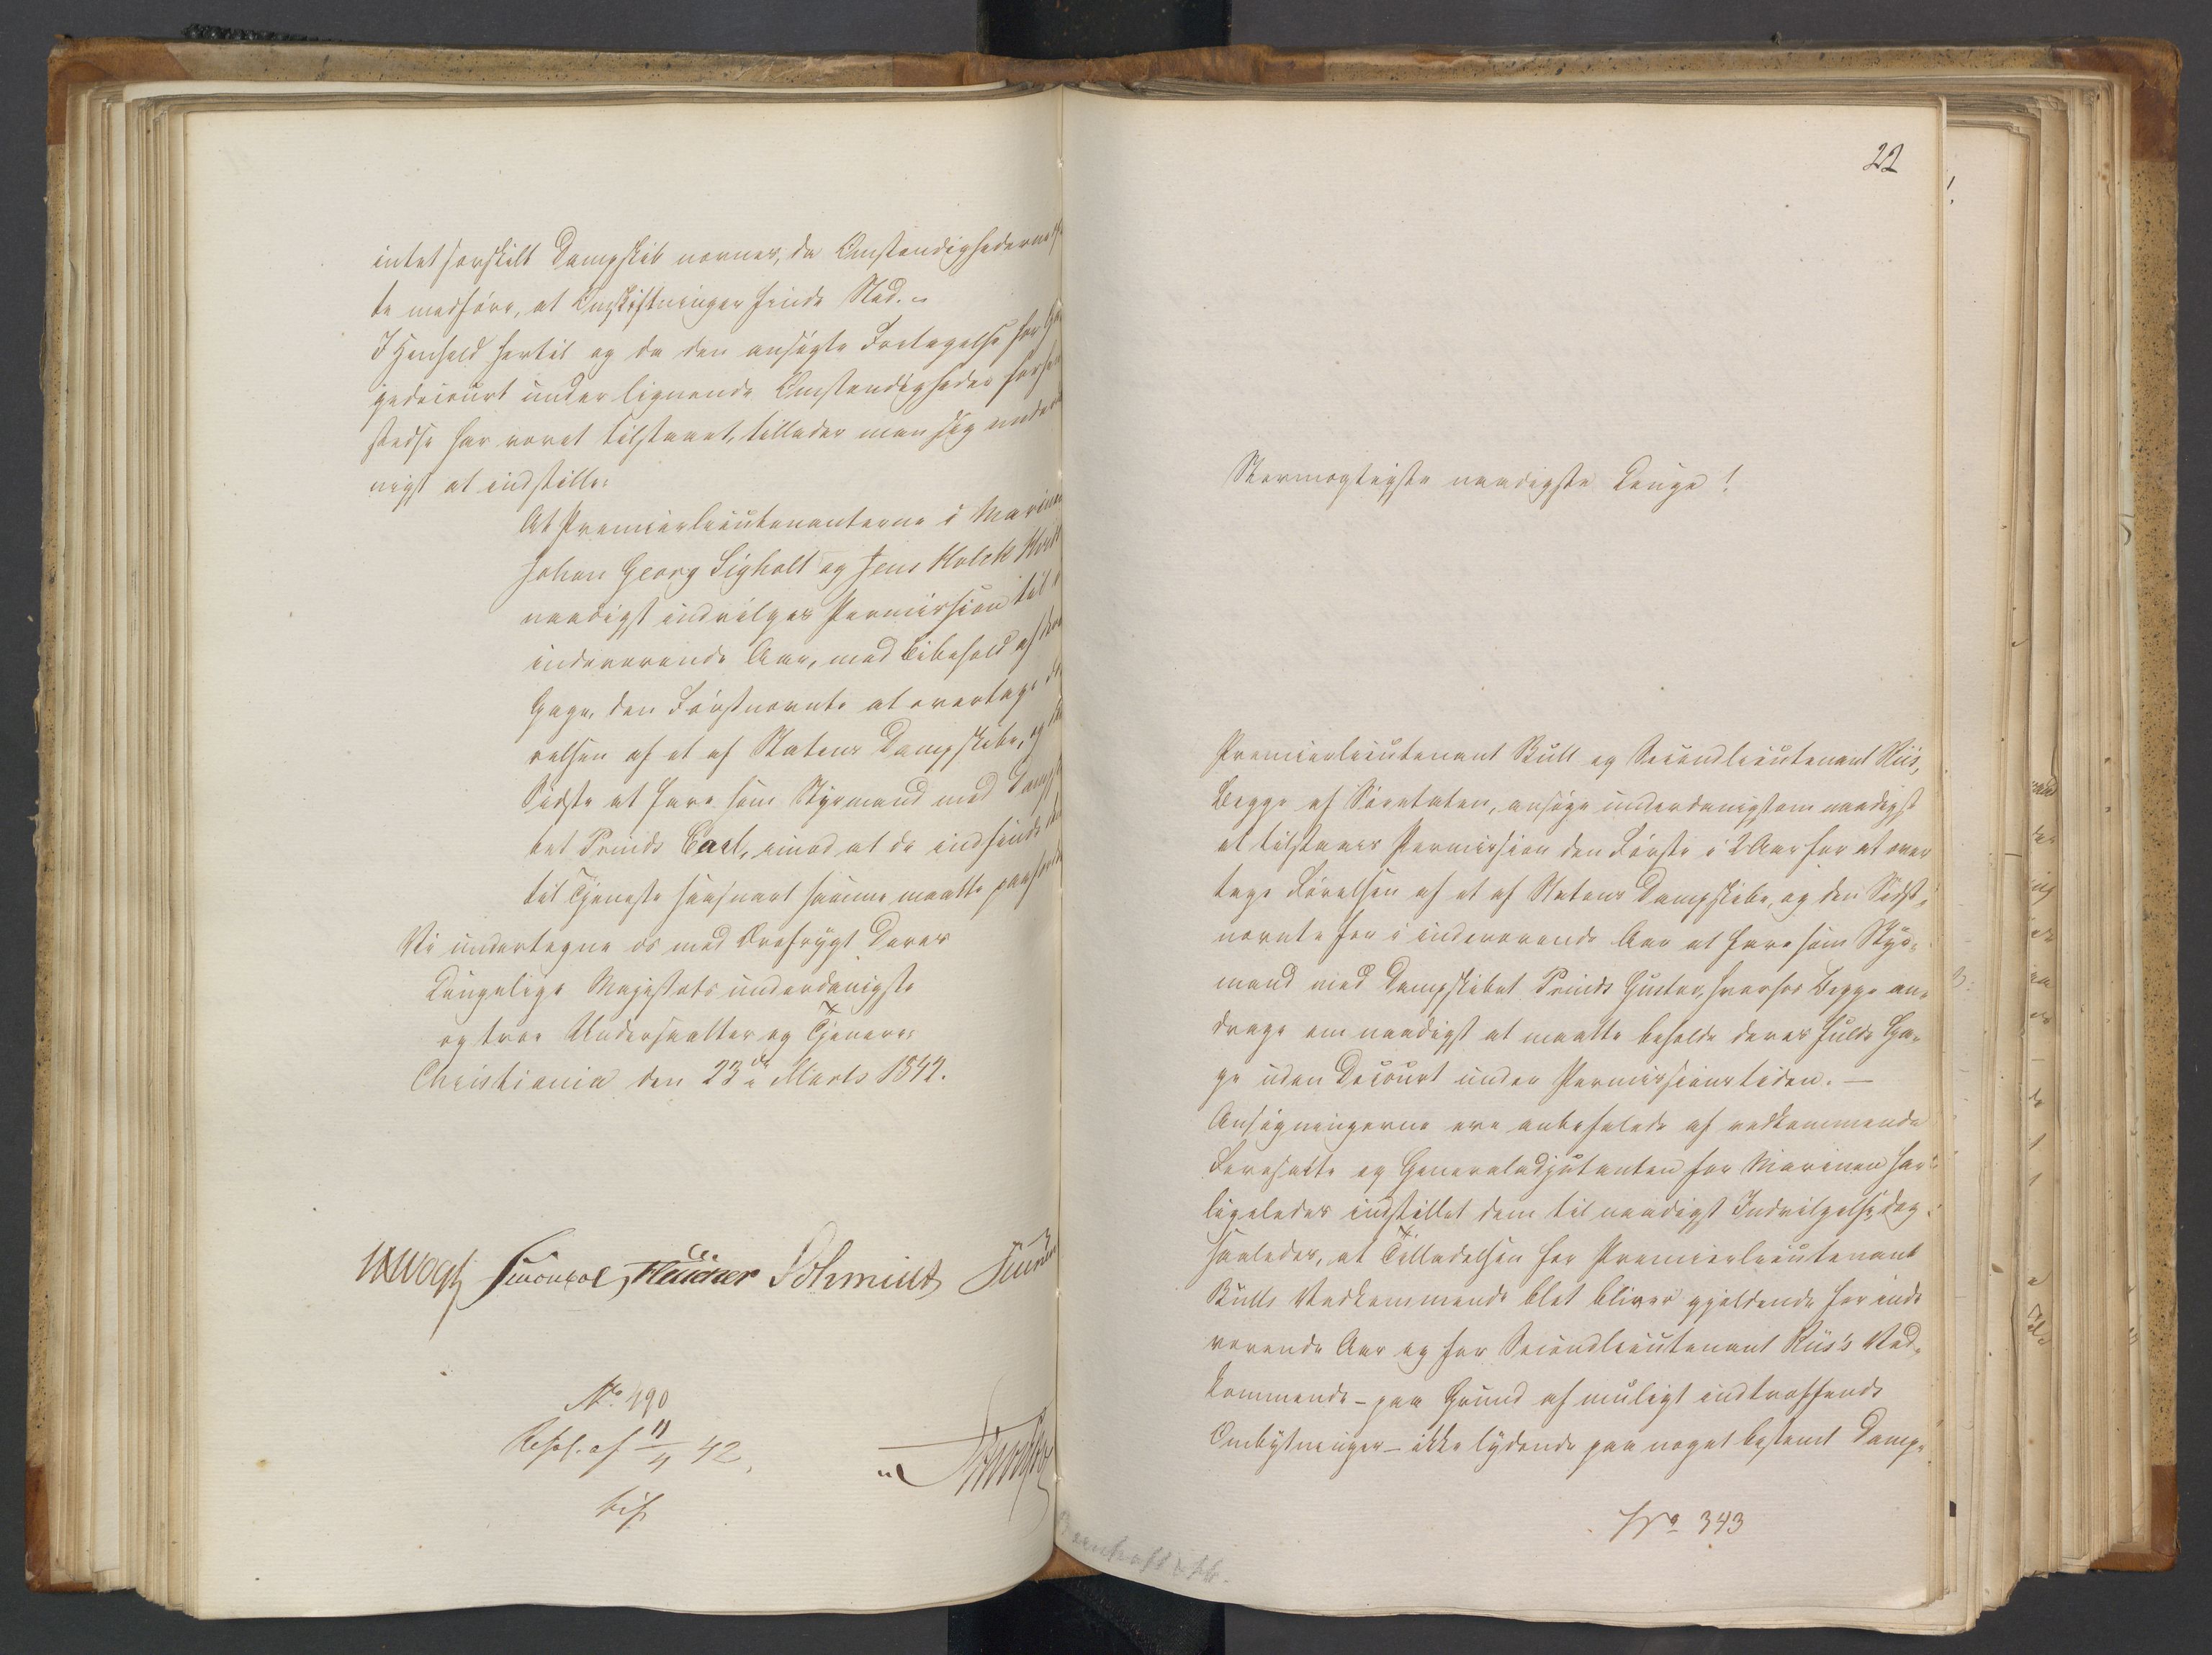 intet særskilt Dampskib nævnes, da Omstændighederne
te medføre, at Omskiftninger finde Sted.
I Henhold hertil og da den ansøgte Fritagelse for Ga
gedecourt under lignende Omstændigheder forhen
stedse har været tilstaaet, tillader man sig under
nigst at indstille:
At Premierlieutenanterne i Marinen
Johan Georg Sigholt og Jens Holck
naadigst indvilges Permission til
indeværende Aar, med Bibehold af
Gage, den Førstnævnte at overtage
relsen af et af Statens Dampskibe, og
Sidste at fare som Styrmand med Damps
bet Prinds Carl, imod at de indfinde
til Tjeneste saasnart saamme maatte
Vi undertegne os med Ærefrygt Deres
Kongelige Majestæts underdanigste
og troe Undersaatter og Tjenere:
Christiania den 23de Marts 1842.
Vogt Fleischer Schmidt
No. 490
Resol. af 11/4 42.
22
Stormægtigste naadigste Konge!
Premierlieutenant Bull og Secondlieutenant Riis,
Begge af Søeetaten, ansøge underdanigst om naadigst
at tilstaaes Permission den Første i 2 Aar for at over
tage Førelsen af et af Statens Dampskibe, og den Sidst-
nævnte for i indeværende Aar at fare som Styr-
mand med Dampskibet Prinds Gustav, hvorhos Begge an-
drage om naadigst at maatte beholde deres fulde Ga-
ge uden Decourt under Permissionstiden. —
Ansøgningerne ere anbefalede af vedkommende
Foresatte og Generaladjutanten for Marinen har
ligeledes indstillet dem til naadigst Indvilgelse, dog
saaledes, at Tilladelsen for Premierlieutenant
Bulls Vedkommende blot bliver gjældende for inde
værende Aar og for Secondlieutenant Riis's Ved-
kommende - paa Grund af muligt indtræffende
Ombytninger - ikke lydende paa noget bestemt Damp-
No 343